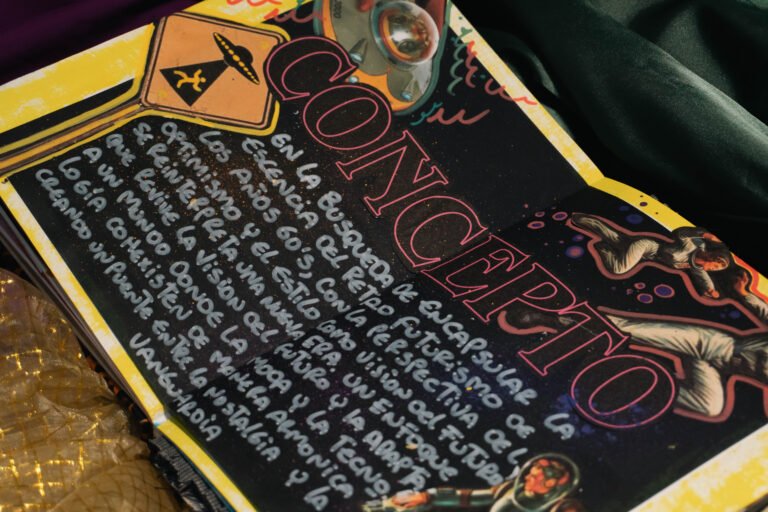 CONCEPTO
EN LA BUSQUEDA DE ENCAPSULAR LA
ESENCIA DEL RETRO FUTURISMO DE
LOS AÑOS 60'S, CON LA PERSPECTIVA DEL
OPTIMISMO Y EL ESTILO COMO VISION DEL FUTURO
SE REINTERPRETA UNA NUEVA ERA. UN ENFOQUE
QUE REVIVE LA VISION DEL FUTURO Y LA ADAPTA
A UN MUNDO DONDE LA MODA Y LA TECNO
LOGIA COHEXISTEN DE MANERA ARMONICA
CREANDO UN PUENTE ENTRE LA NOSTALGIA Y LA
VANGUARDIA